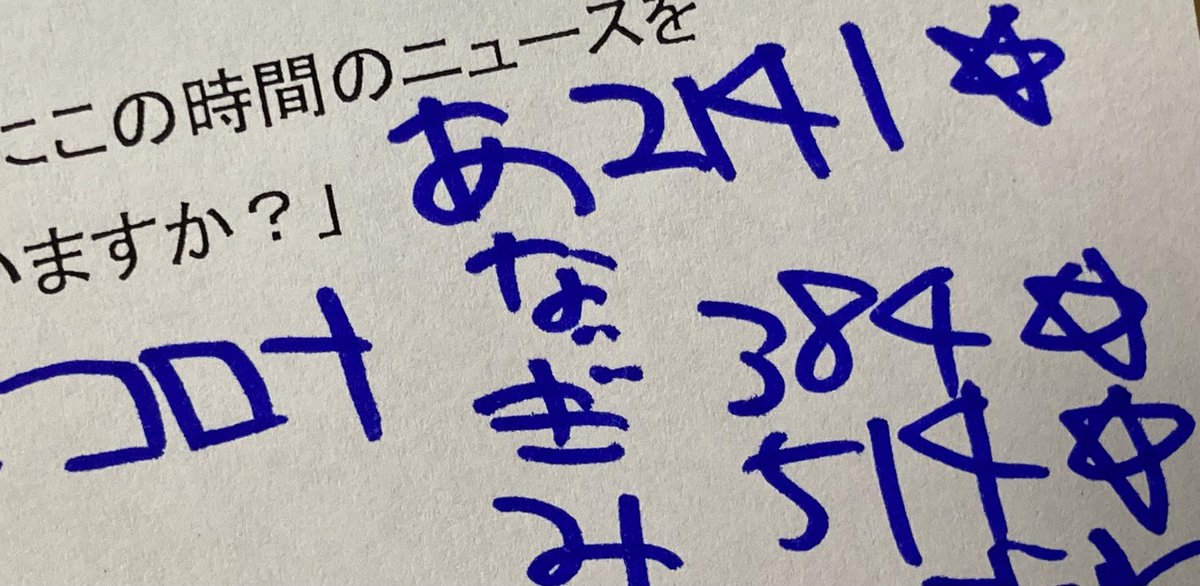 ここの時間のニュースを
いますか？」
コロナ
あ 2141☆
な 384☆
ぎ 514☆
み